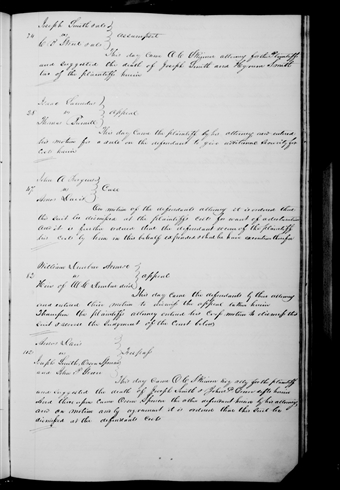 Joseph Smith &als }
24 vs } Assumpsit
C. P. &als }
This day came A C Skinner attorney for the plaintiff
and suggested the death of Joseph Smith and Hyrum Smith
two of the plaintiffs herein
Isaac
25 vs } Appeal
Thomas
This day came the plaintiff by his attorney and entered
his motion for a rule on the defendant to give additional security for
Cost herein
John A Ferguson }
47 vs } Case
Amos Davis }
On motion of the defendants attorney it is ordered that
this suit be dismissed at the plaintiffs costs for want of
And it is further ordered that the defendant recover of the plaintiff
his costs by him in this behalf expended & that he have execution therefor
William
82 vs } Appeal
Heirs of dec'd
This day came the appellants by their attorney
and entered their motion to the appeal taken herein
Thereupon the plaintiffs attorney entered his motion to dismiss the
Suit & the Judgment of the Court below
Amos Davis }
vs } Trespass
Joseph Smith, Orson Spencer }
and John P Greene }
This day Came A C Skinner atty for the plaintiff
and suggested the death of Joseph Smith & John P. Greene defts herein
And thereupon Came Orson Spencer the other defendant herein by his attorney
and on motion and by agreement it is ordered that this Suit be
dismissed at the defendants Costs